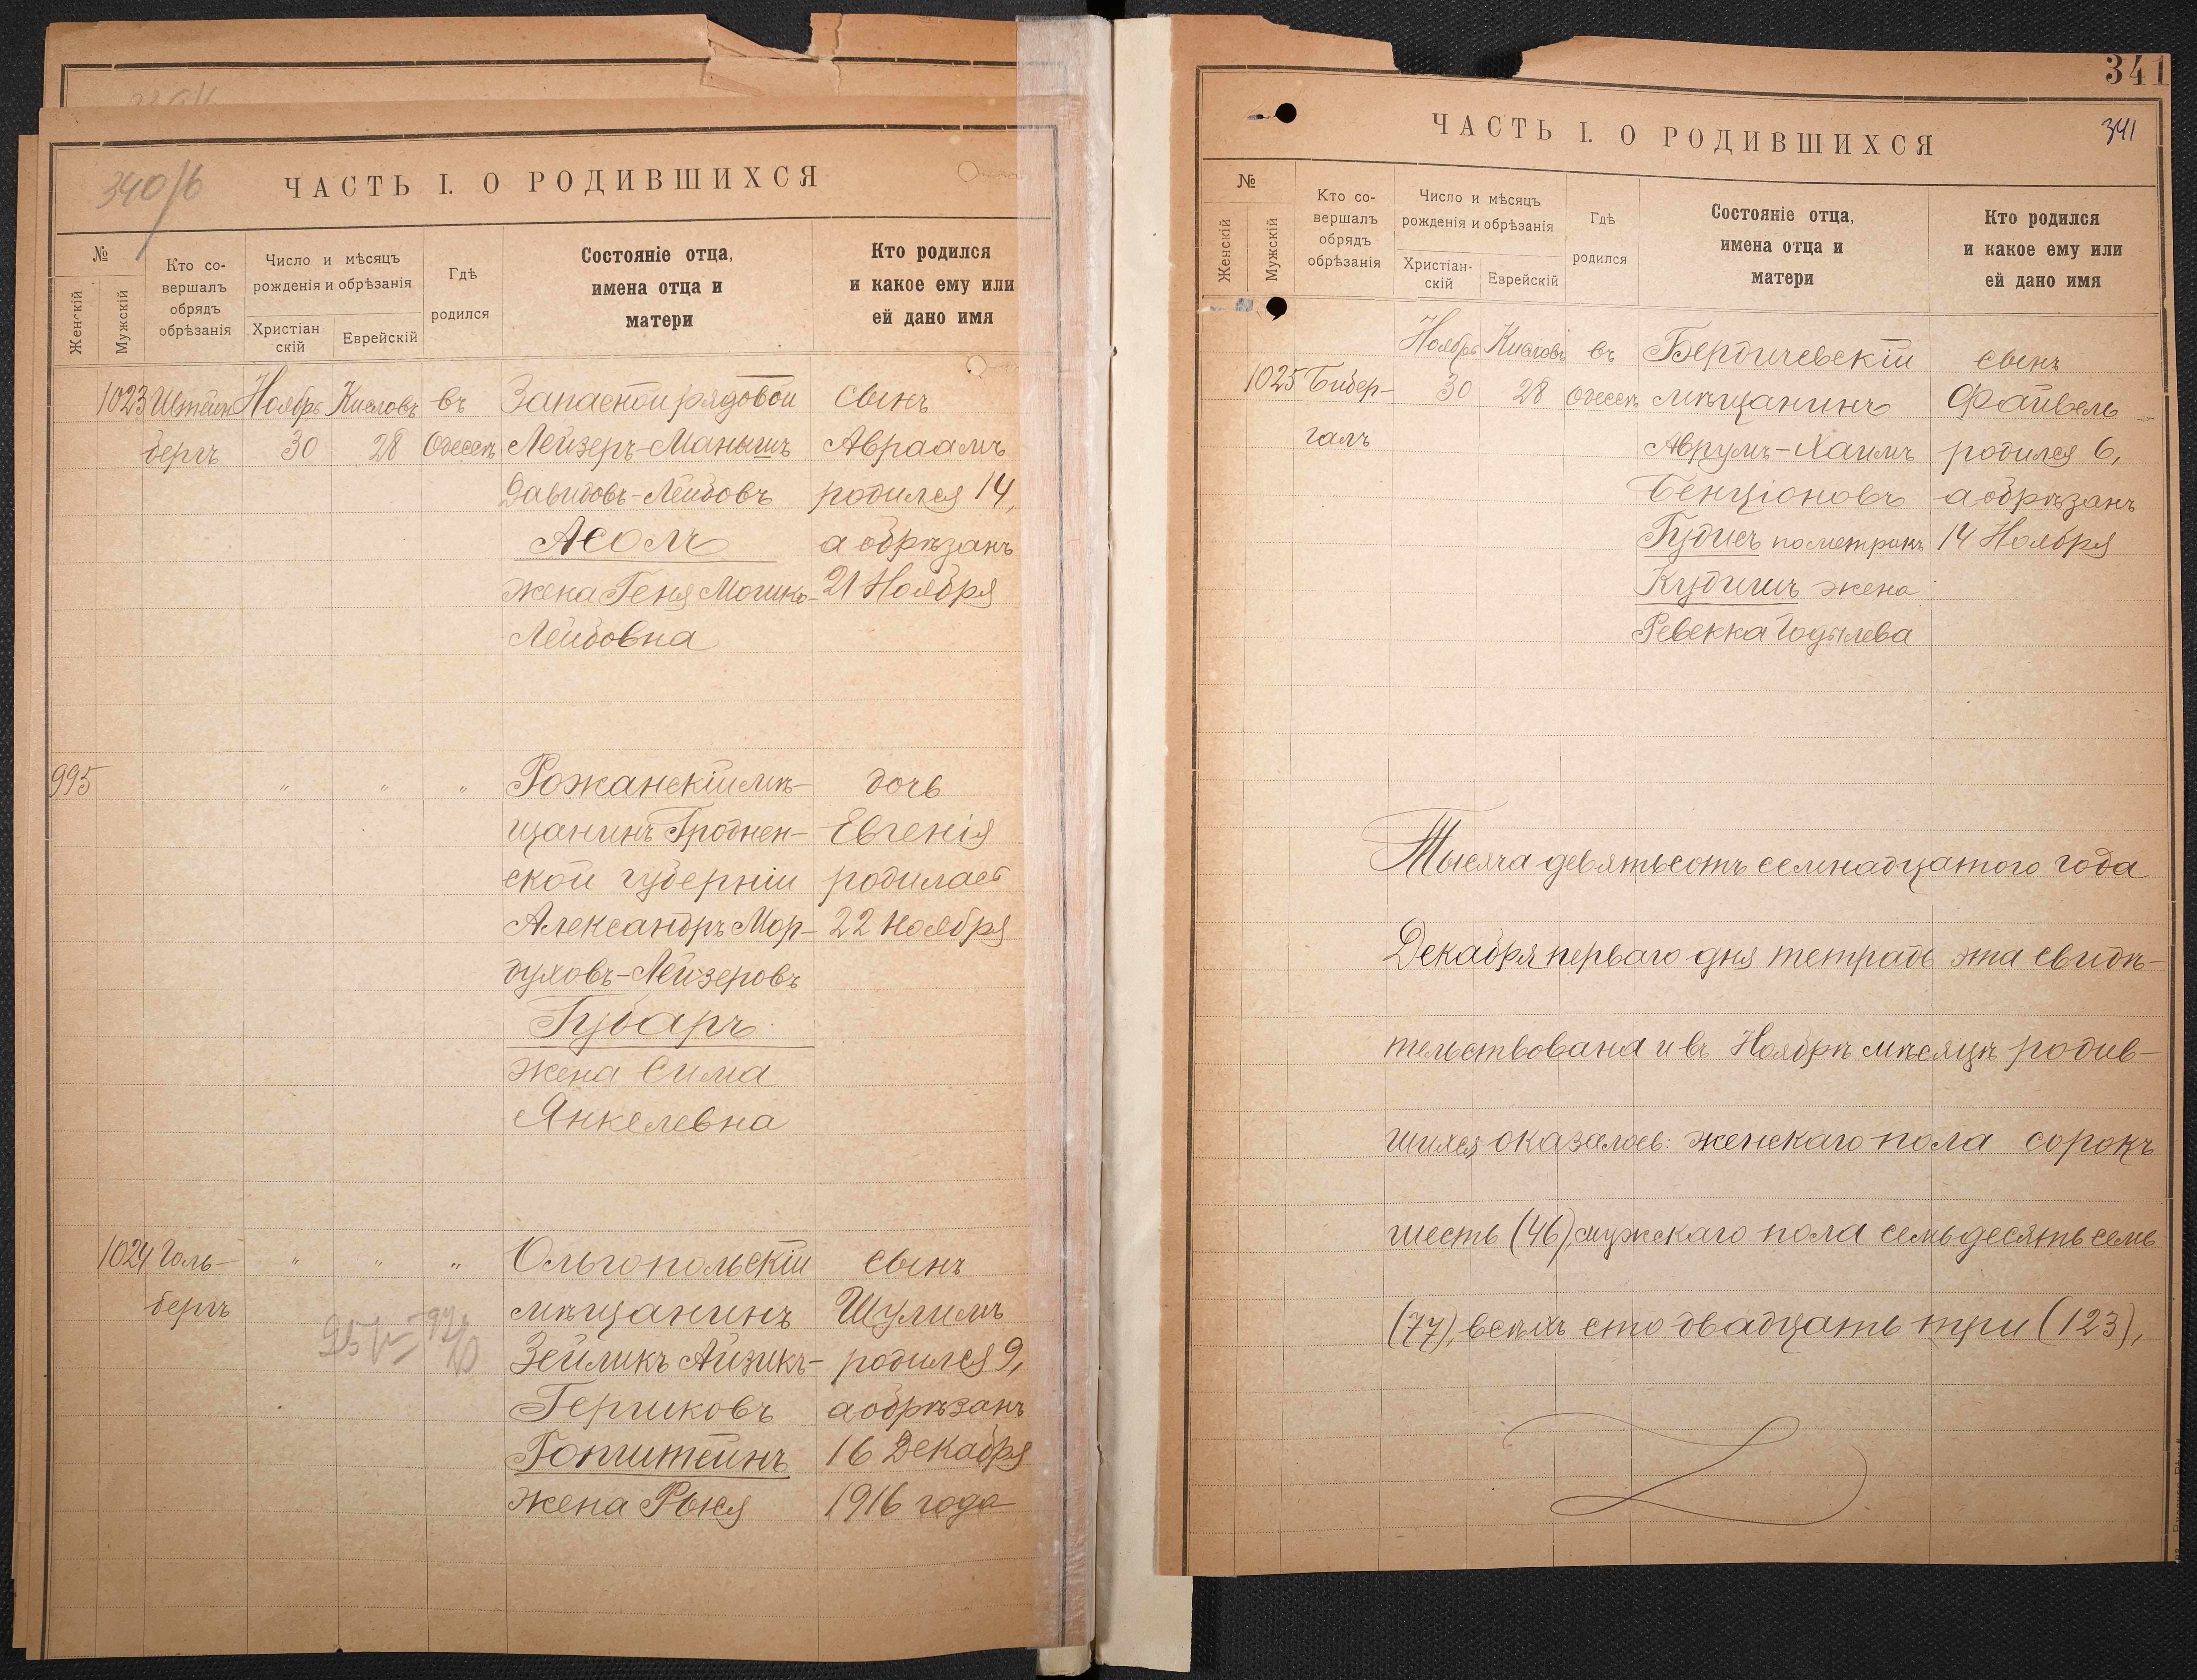 340/б
ЧАСТЬ I. О РОДИВШИХСЯ
№
Женскій
Мужскій
Кто со-
вершалъ
обрядъ
обрѣзанія
Число и мѣсяцъ
рожденія и обрѣзанія
Христіан
скій
Еврейскій
Гдѣ
родился
Состояніе отца,
имена отца и
матери
Кто родился
и какое ему или
ей дано имя
1023 Штейн Ноябрь Кислевъ въ Запасной рядовой сынъ
бергъ 30 28 Одессѣ Лейзеръ-Манышъ Авраамъ
Давидовъ-Лейбовъ родился 14,
Асолъ а обрѣзанъ
жена Геня Мошко- 21 Ноября
Лейбовна
995 " " " Рожанскій мѣ- дочь
щанинъ Гроднен- Евгенія
ской губерніи родилась
Александръ Мор- 22 Ноября
духовъ-Лейзеровъ
Губаръ
жена Сима
Янкелевна
1024 Голь- " " " Ольгопольскій сынъ
бергъ мѣщанинъ Шулимъ
Зейликъ Айзикъ- родился 9,
Гершковъ а обрѣзанъ
Гопштейнъ 16 Декабря
жена Рыся 1916 года
341
ЧАСТЬ I. О РОДИВШИХСЯ
341
№
Женскій
Мужскій
Кто со-
вершалъ
обрядъ
обрѣзанія
Число и мѣсяцъ
рожденія и обрѣзанія
Христіан-
скій
Еврейскій
Гдѣ
родился
Состояніе отца,
имена отца и
матери
Кто родился
и какое ему или
ей дано имя
Ноябрь Кислевъ въ Бердичевскій сынъ
1025 Бибер- 30 28 Одессѣ мѣщанинъ Файвель
галъ Аврумъ-Хаимъ родился 6,
Бенціоновъ а обрѣзанъ
Гудисъ по метрикѣ 14 Ноября
Кудишъ жена
Ревекка Годылева
Тысяча девятьсотъ семнадцатого года
Декабря перваго дня тетрадь эта свидѣ-
тельствована и въ Ноябрѣ мѣсяцѣ родив-
шихся оказалось: женскаго пола сорокъ
шесть (46), мужскаго пола семьдесять семь
(77), всѣхъ сто двадцать три (123),